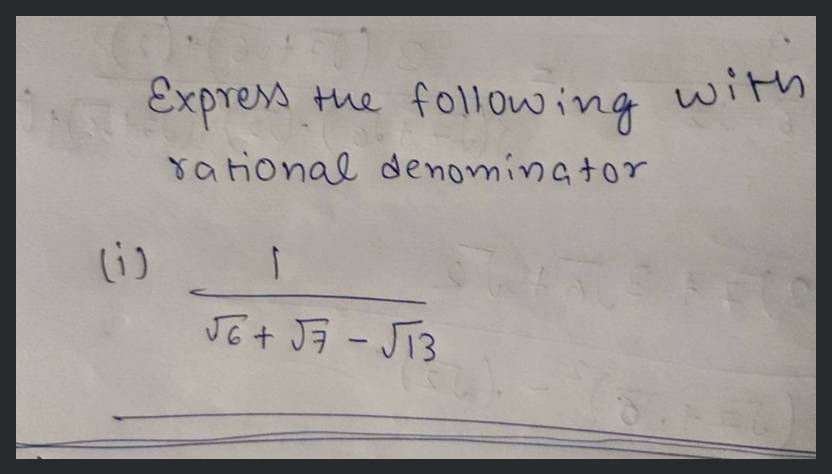 Express the following with
rational denominator
(i) 1
√6 + √7 - √13